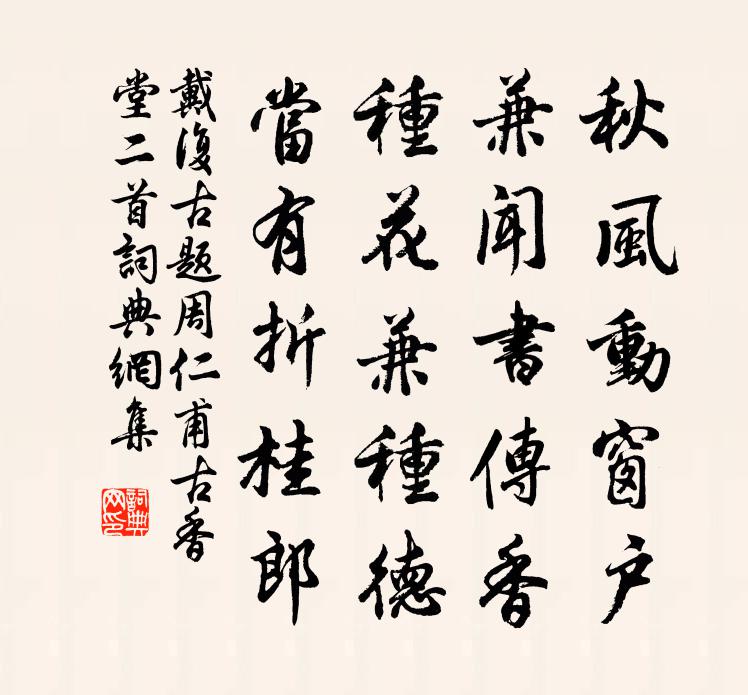 秋風動窗戶
兼聞書傳香
種花兼種德
當有折桂郎
戴復古題周仁甫古香
堂二首詞典網集
詞典
网印